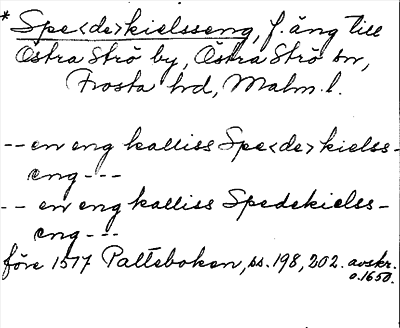 * Spe<de>kielsseng, f. äng till
Östra Strö by, Östra Strö sn,
Frosta hd, Malm.l.
-- en eng kalliss Spe<de>kielss-
eng ---
-- en eng kalliss Spedekielss-
eng ---
före 1517 Palteboken, ss. 198, 202. avskr.
o.1650.